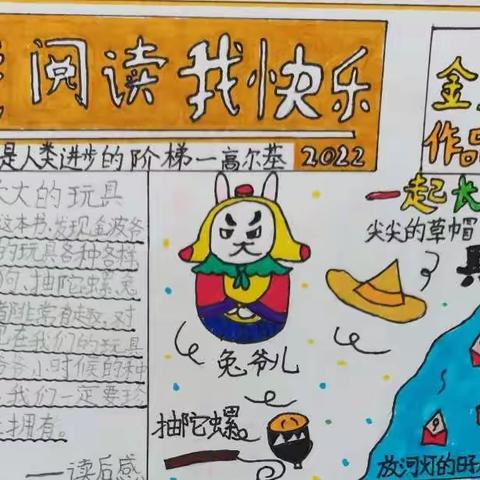 阅读 我快乐
是人类进步的阶梯一高尔基 2022
大的玩具
这本书,发现金波爷
的玩具各种各样
狗、抽陀螺、兔
都非常有趣,对
在我们的玩具
爷爷小时候的种
,我们一定要珍
拥有。
——读后感
兔爷儿
抽陀螺
金
作品
一起长
尖尖的草帽
放河灯的日